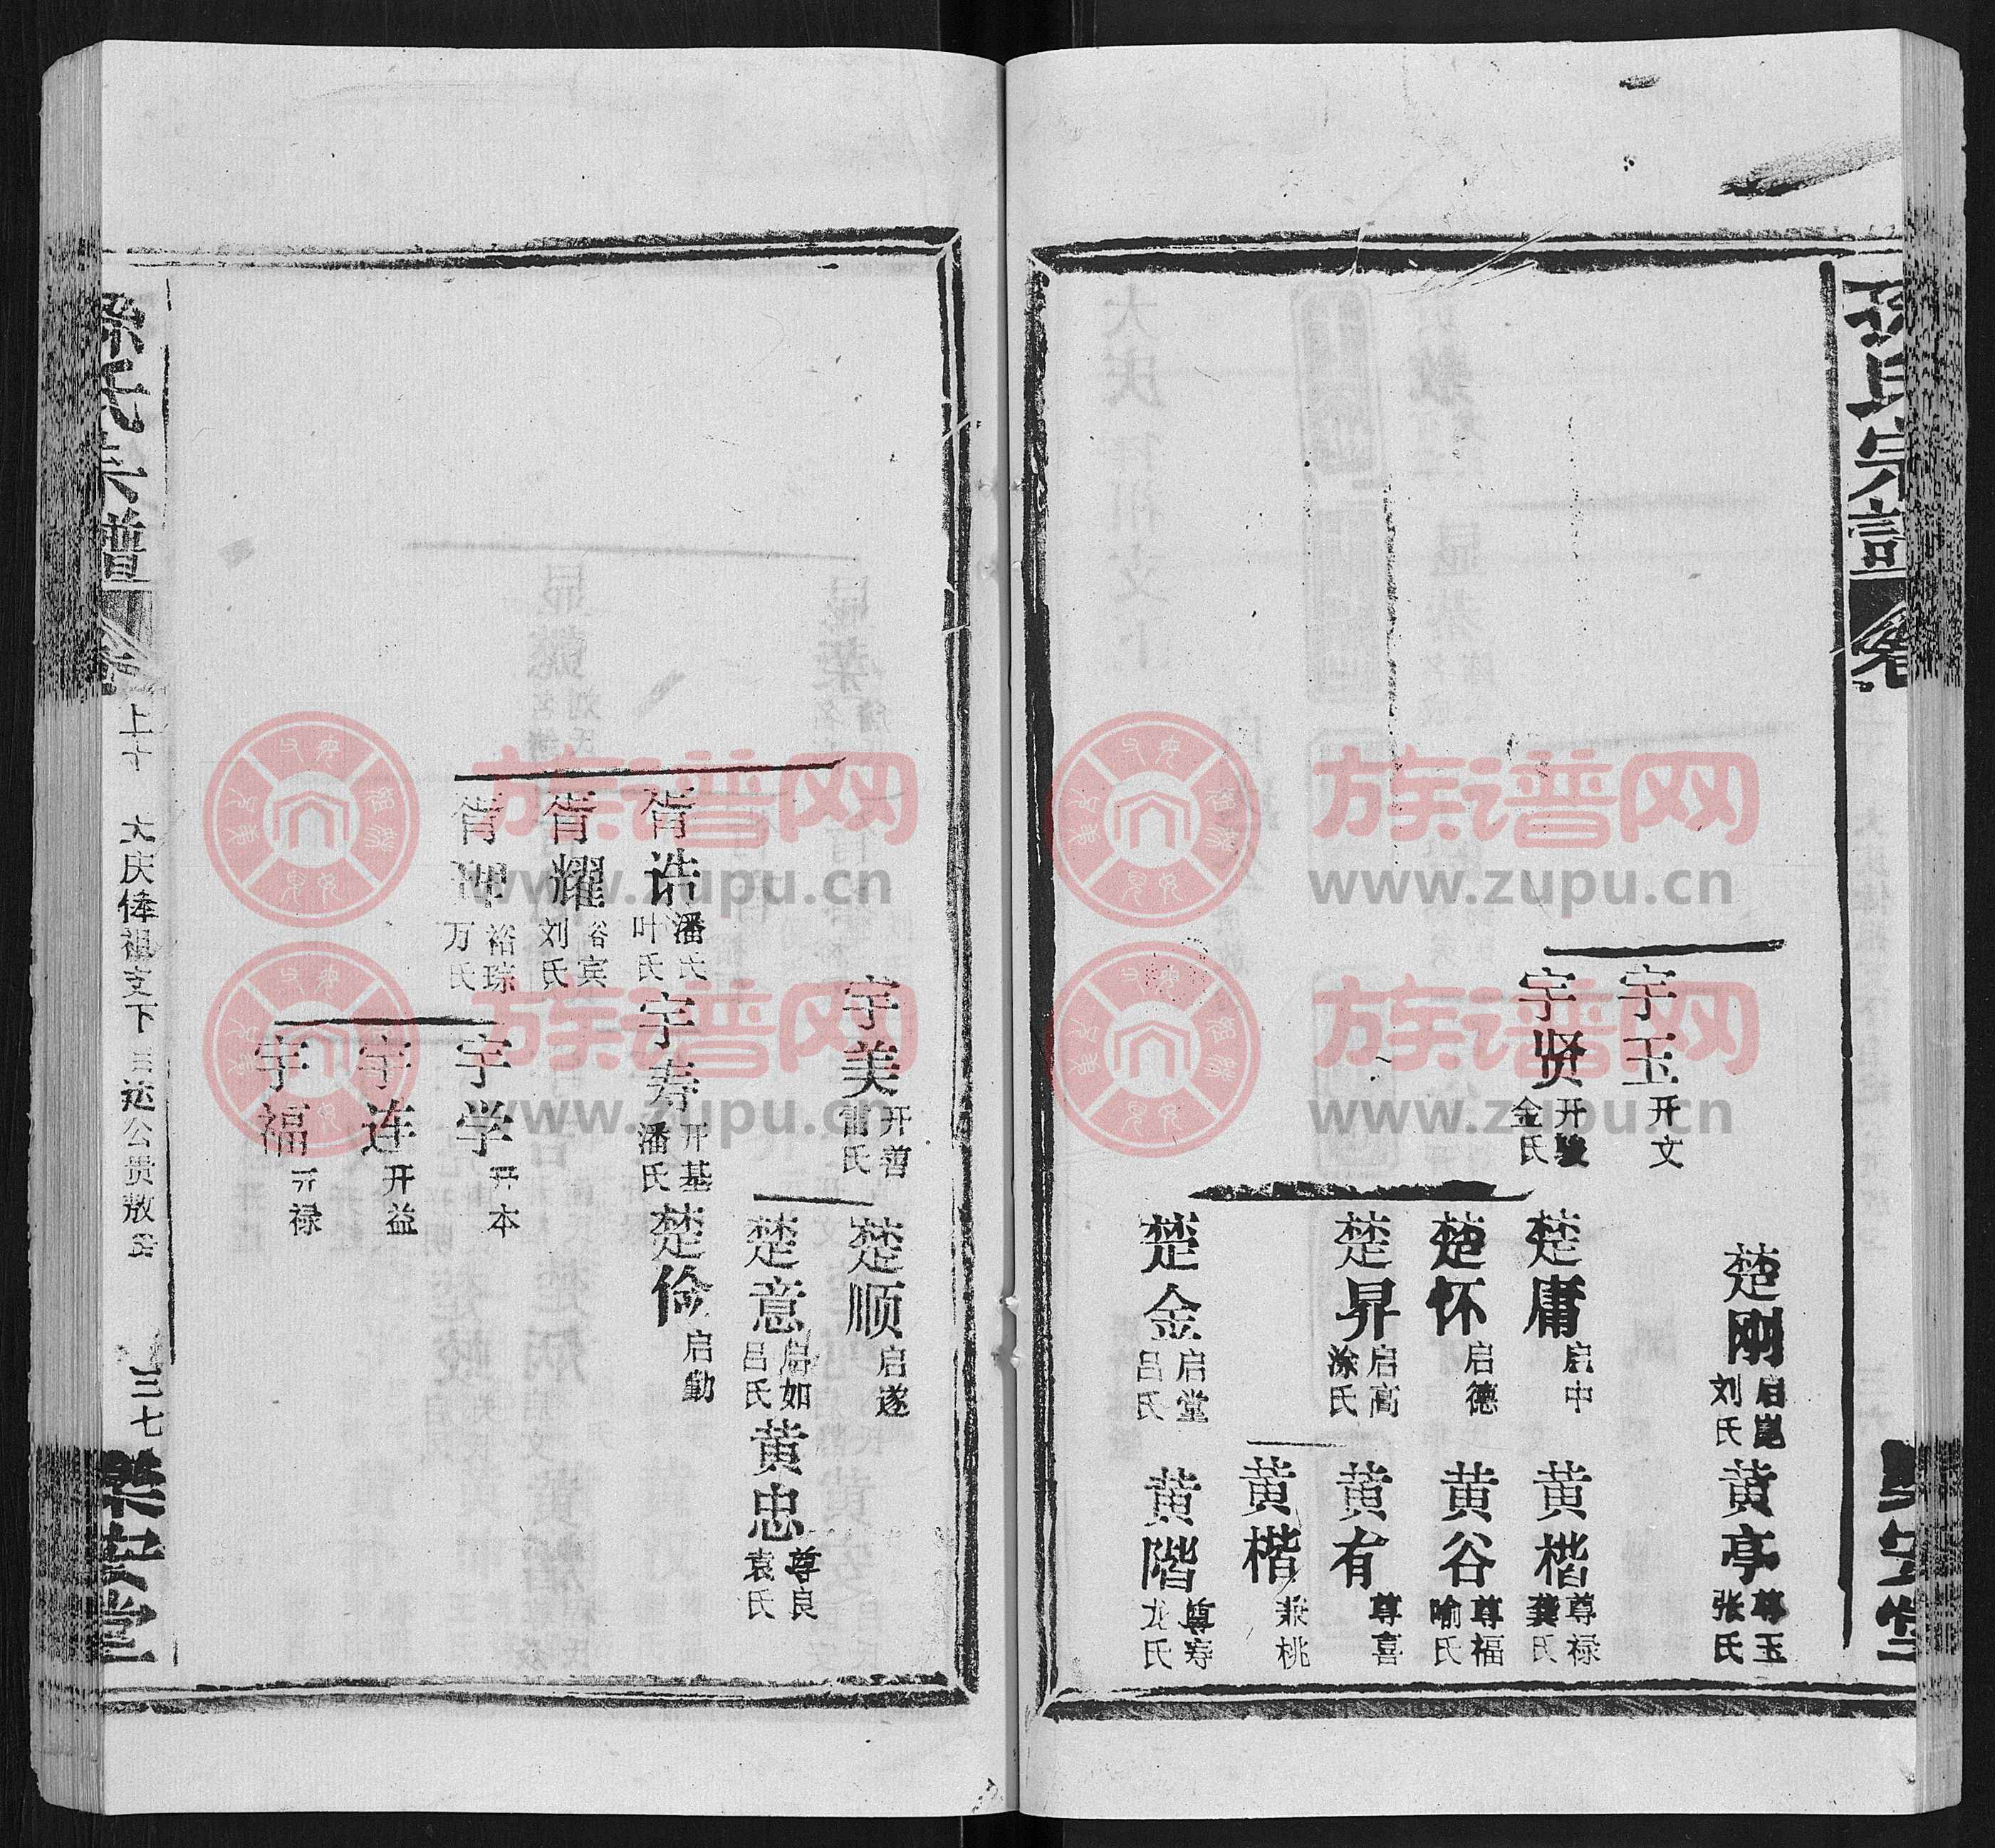 楚刚 启嵬 刘氏
黄亭 尊玉 张氏
宇玉 开文
宇贤 开骏 金氏
楚庸 启中
黄楷 尊禄 龚氏
楚怀 启德
黄谷 尊福 喻氏
楚昇 启高 涂氏
黄有 尊喜
黄楷 兼桃
楚金 启堂 吕氏
黄阶 尊寿 尤氏
宇美 开善 雷氏
楚顺 启遂
楚意 启如 吕氏
黄忠 尊良 袁氏
胥诰 潘氏 叶氏
宇寿 开基 潘氏
楚俭 启勤
胥耀 裕宾 刘氏
裕琮 万氏
宇学 开本
宇连 开益
宇福 开禄
孙氏宗谱
卷上十
大庆俸祖支下
运公贵敖公
三七
乐安堂
族谱网
www.zupu.cn
族谱网
www.zupu.cn
族谱网
www.zupu.cn
族谱网
www.zupu.cn